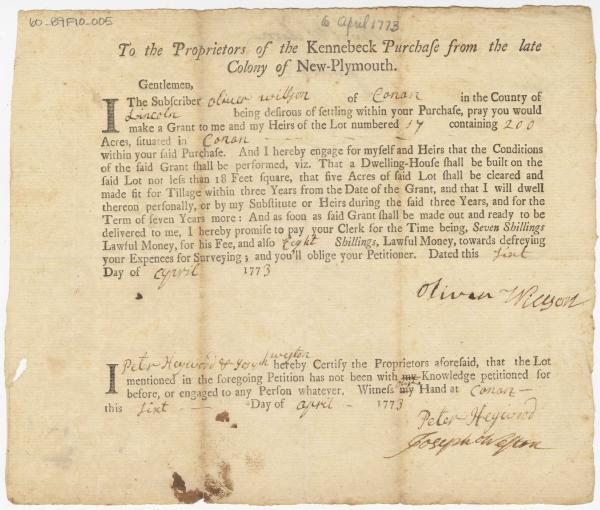 60-B9F10-005
6 April 1773
To the Proprietors of the Kennebeck Purchaſe from the late
Colony of New-Plymouth.
Gentlemen,
I The Subſcriber oliver willson of Conan in the County of
Lincoln being deſirous of ſettling within your Purchaſe, pray you would
make a Grant to me and my Heirs of the Lot numbered 17 containing 200
Acres, situated in Conan
within your ſaid Purchaſe. And I hereby engage for myſelf and Heirs that the Conditions
of the ſaid Grant ſhall be performed, viz. That a Dwelling-Houſe ſhall be built on the
ſaid Lot not leſs than 18 Feet ſquare, that five Acres of ſaid Lot ſhall be cleared and
made fit for Tillage within three Years from the Date of the Grant, and that I will dwell
thereon perſonally, or by my Subſtitute or Heirs during the ſaid three Years, and for the
Term of ſeven Years more: And as ſoon as ſaid Grant ſhall be made out and ready to be
delivered to me, I hereby promiſe to pay your Clerk for the Time being, Seven Shillings
Lawful Money, for his Fee, and alſo Eight Shillings, Lawful Money, towards defreying
your Expences for Surveying; and you'll oblige your Petitioner. Dated this ſixt
Day of april 1773
Oliver Willson
I Peter Heywood & Joseph weston hereby Certify the Proprietors aforeſaid, that the Lot
mentioned in the foregoing Petition has not been with my our Knowledge petitioned for
before, or engaged to any Perſon whatever. Witneſs my Hand at Conan
this ſixt Day of april 1773
Peter Heywood
Joseph Weston